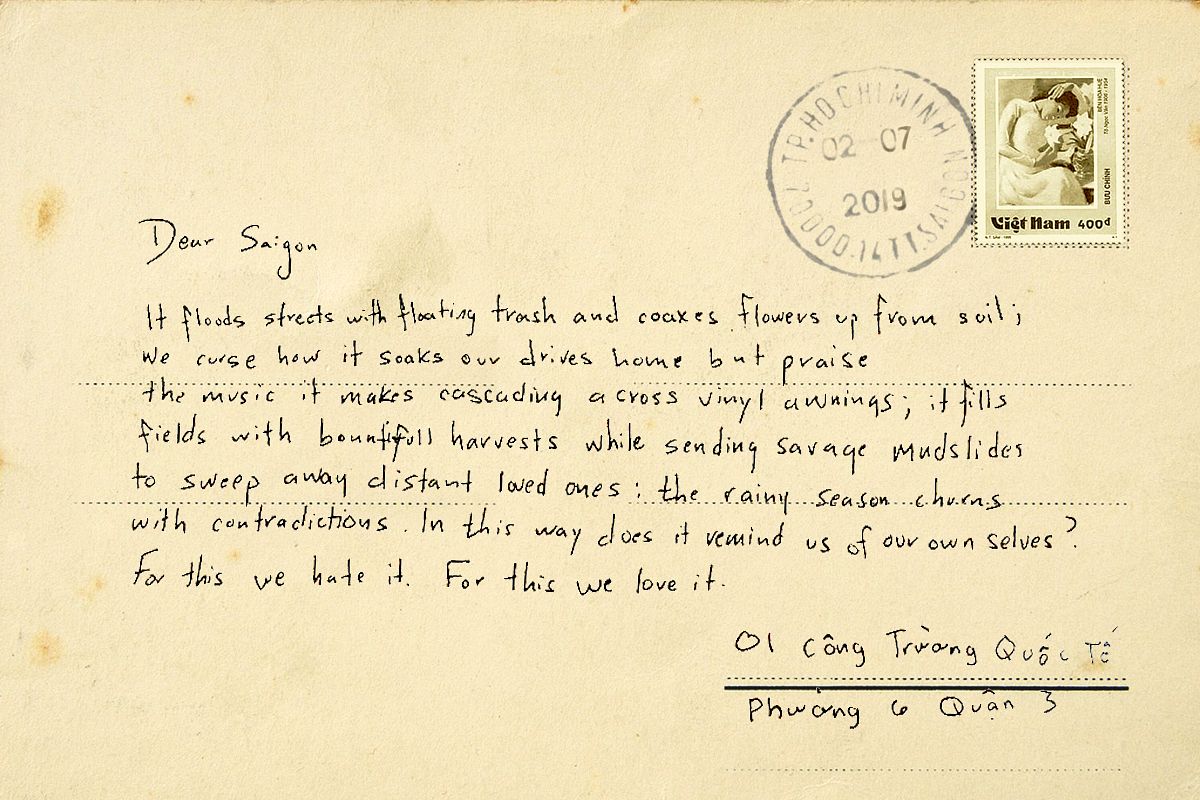 TP.HO CHI MINH
02 07
2019
70000.14TT.SAIGON
BÊN HOA HUỆ
Tô Ngọc Vân 1906 - 1954
BƯU CHÍNH
Việt Nam 400đ
Dear Saigon
It floods streets with floating trash and coaxes flowers up from soil;
we curse how it soaks our drives home but praise
the music it makes cascading across vinyl awnings; it fills
fields with bountifull harvests while sending savage mudslides
to sweep away distant loved ones: the rainy season churns
with contradictions. In this way does it remind us of our own selves?
For this we hate it. For this we love it.
01 Công Trường Quốc Tế
Phường 6 Quận 3